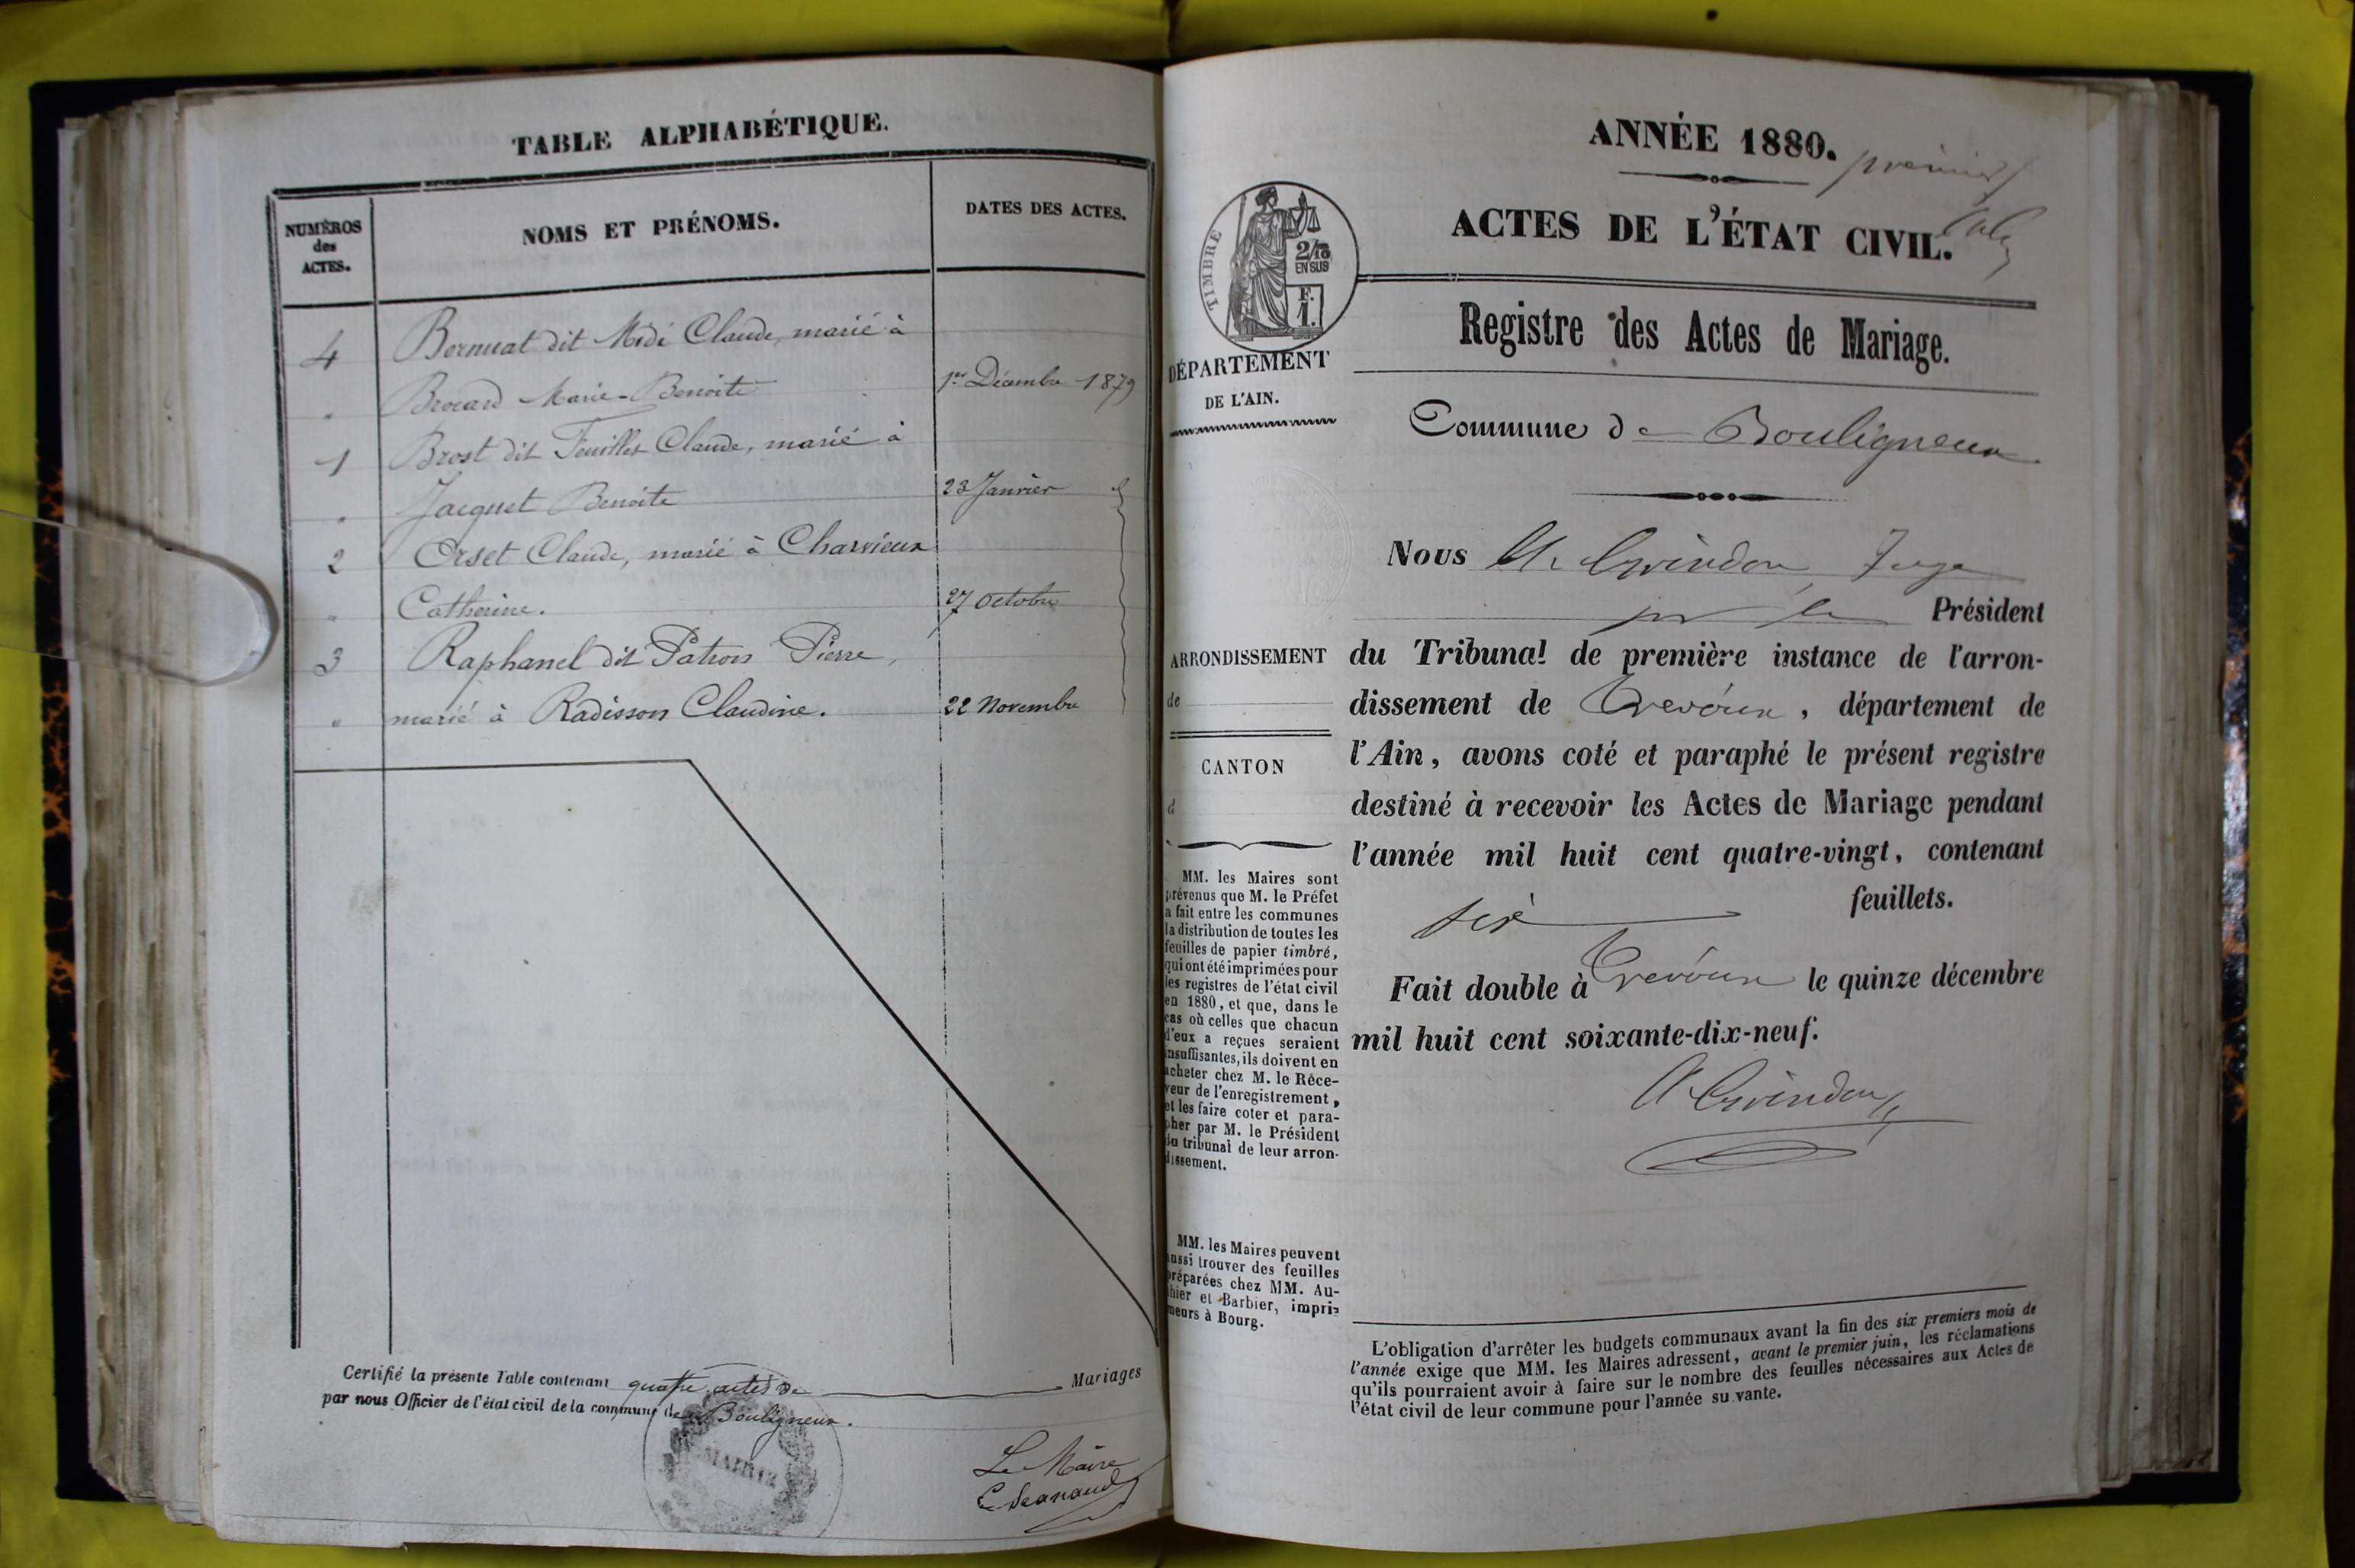 TABLE ALPHABÉTIQUE.
NUMÉROS
des
ACTES.
NOMS ET PRÉNOMS.
DATES DES ACTES.
4 Bernuat dit Midi Claude, marié à
" Brocard Marie-Benoite 1er Décembre 1879
1 Brost dit Feuillet Claude, marié à
" Jacquet Benoite 23 Janvier
2 Orset Claude, marié à Charvieux
" Catherine. 27 Octobre
3 Raphanel dit Patron Pierre,
" marié à Radisson Claudine. 22 Novembre
Certifié la présente Table contenant quatre actes de Mariages
par nous Officier de l'état civil de la commune de Bouligneux.
MAIRIE
Le Maire
ANNÉE 1880.
premier
ACTES DE L'ÉTAT CIVIL.
TIMBRE
2/10
EN SUS
F.
1.
DÉPARTEMENT
DE L'AIN.
Registre des Actes de Mariage.
Commune de Bouligneux
Nous Juge
Président
ARRONDISSEMENT
de
CANTON
d
du Tribunal de première instance de l'arron-
dissement de Trevoux, département de
l'Ain, avons coté et paraphé le présent registre
destiné à recevoir les Actes de Mariage pendant
l'année mil huit cent quatre-vingt, contenant
six feuillets.
Fait double à Trevoux le quinze décembre
mil huit cent soixante-dix-neuf.
MM. les Maires sont
prévenus que M. le Préfet
a fait entre les communes
la distribution de toutes les
feuilles de papier timbré,
qui ont été imprimées pour
les registres de l'état civil
en 1880, et que, dans le
cas où celles que chacun
d'eux a reçues seraient
insuffisantes, ils doivent en
acheter chez M. le Rece-
veur de l'enregistrement,
et les faire coter et para-
pher par M. le Président
du tribunal de leur arron-
dissement.
MM. les Maires peuvent
aussi trouver des feuilles
préparées chez MM. Au-
thier et Barbier, impri-
meurs à Bourg.
L'obligation d'arrêter les budgets communaux avant la fin des six premiers mois de
l'année exige que MM. les Maires adressent, avant le premier juin, les réclamations
qu'ils pourraient avoir à faire sur le nombre des feuilles nécessaires aux Actes de
l'état civil de leur commune pour l'année su vante.